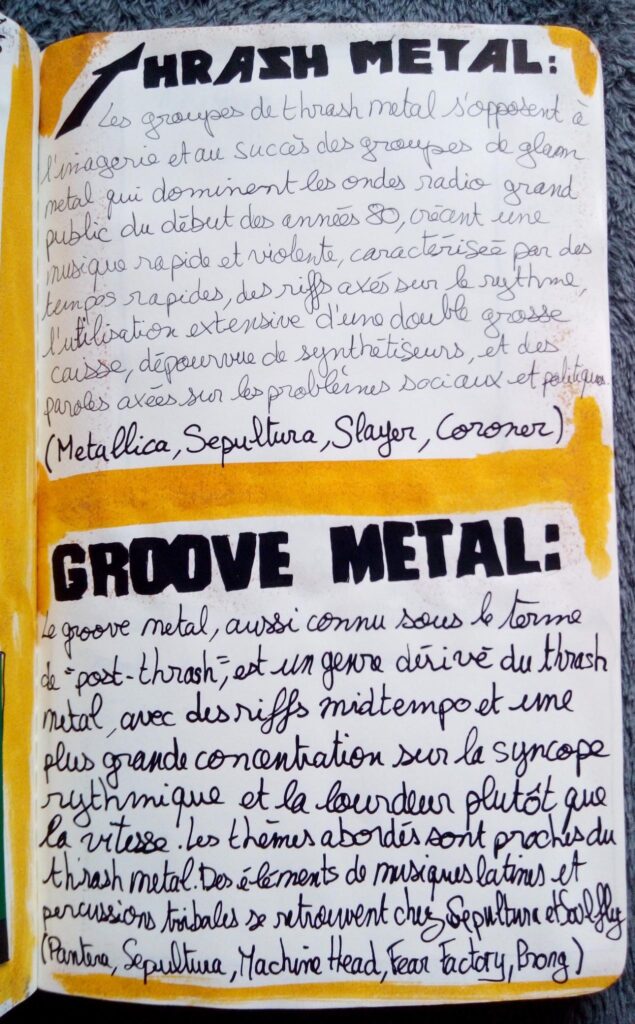 THRASH METAL:
Les groupes de thrash metal s'opposent à
l'imagerie et au succès des groupes de glam
metal qui dominent les ondes radio grand
public du début des années 80, créant une
musique rapide et violente, caractérisée par des
tempos rapides, des riffs axés sur le rythme,
l'utilisation extensive d'une double grosse
caisse, dépourvue de synthétiseurs, et des
paroles axées sur les problèmes sociaux et politiques.
(Metallica, Sepultura, Slayer, Coroner)
GROOVE METAL:
Le groove metal, aussi connu sous le terme
de "post-thrash", est un genre dérivé du thrash
metal, avec des riffs midtempo et une
plus grande concentration sur la syncope
rythmique et la lourdeur plutôt que
la vitesse. Les thèmes abordés sont proches du
thrash metal. Des éléments de musiques latines et
percussions tribales se retrouvent chez Sepultura et Soulfly
(Pantera, Sepultura, Machine Head, Fear Factory, Prong)